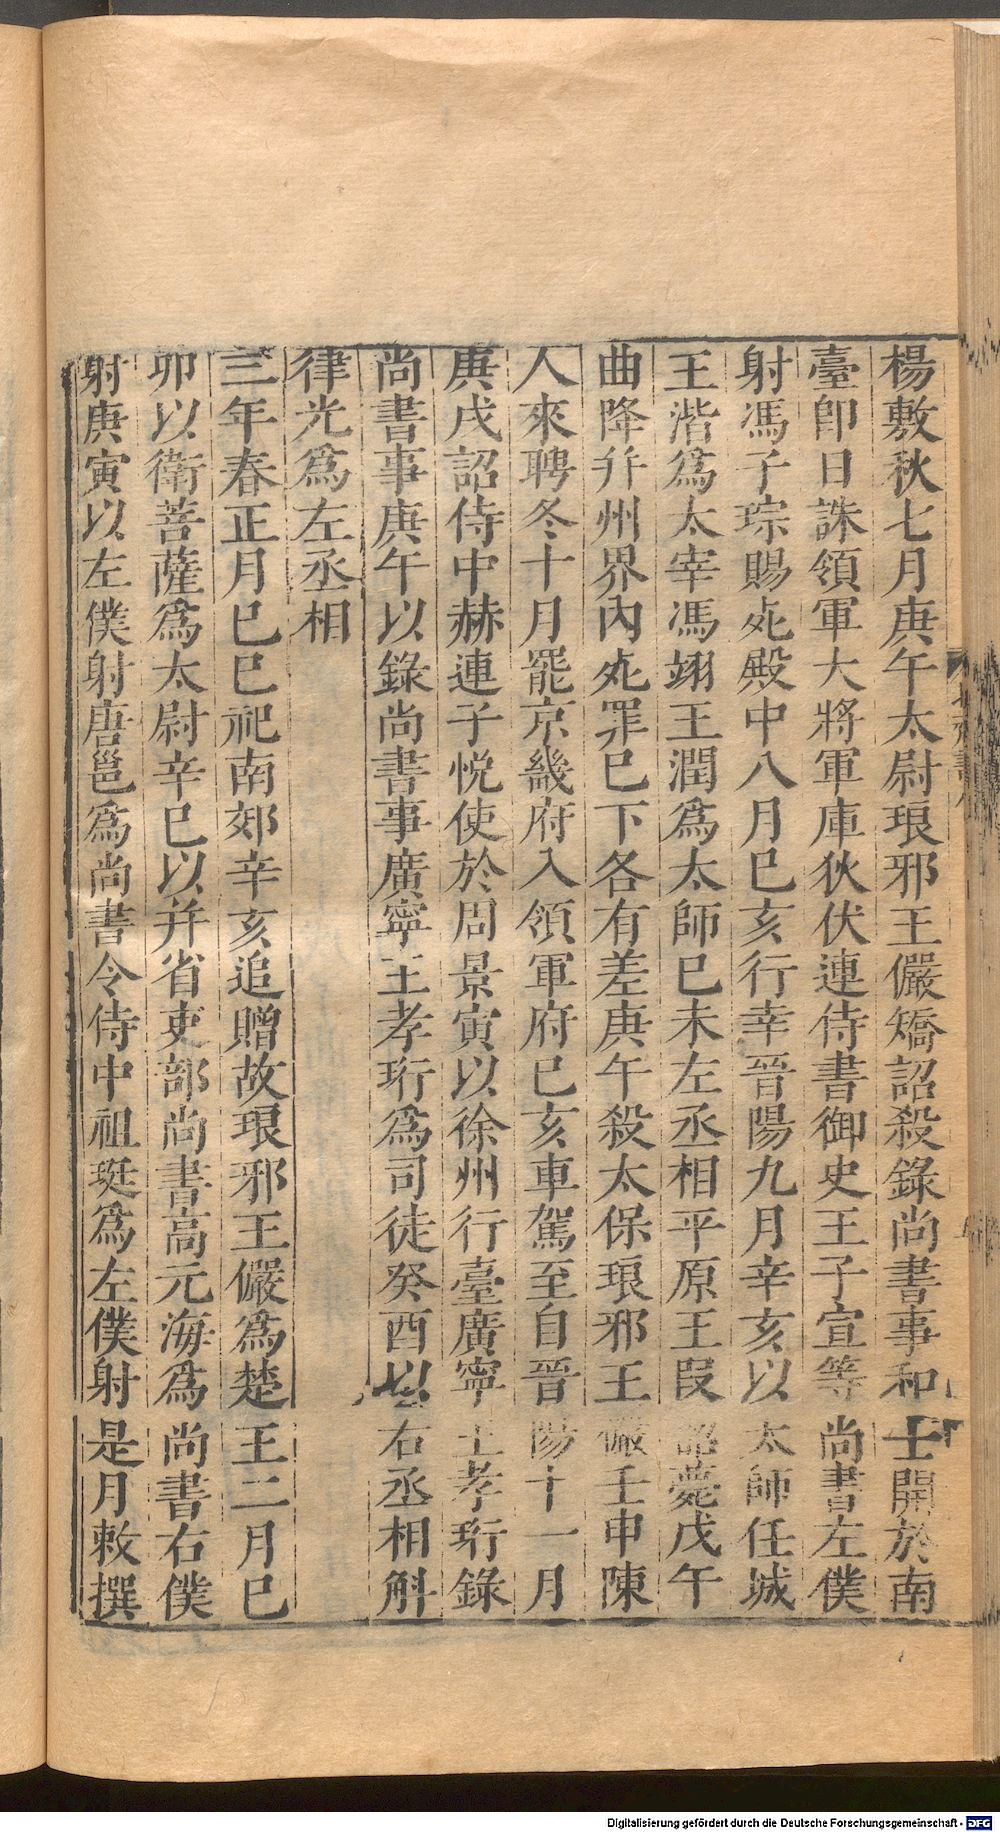 楊敷秋七月庚午太尉琅邪王儼矯詔殺錄尚書事和士開於南
臺即日誅領軍大將軍庫狄伏連侍書御史王子宣等尚書左僕
射馮子琮賜死殿中八月巳亥行幸晉陽九月辛亥以太師任城
王湝爲太宰馮翊王潤爲太師巳未左丞相平原王叚韶薨戊午
曲降并州界內死罪巳下各有差庚午殺太保琅邪王儼壬申陳
人來聘冬十月罷京畿府入領軍府巳亥車駕至自晉陽十一月
庚戌詔侍中赫連子悅使於周景寅以徐州行臺廣寧王孝珩錄
尚書事庚午以錄尚書事廣寧王孝珩爲司徒癸酉以右丞相斛
律光爲左丞相
三年春正月巳巳祀南郊辛亥追贈故琅邪王儼爲楚王二月巳
卯以衛菩薩爲太尉辛巳以并省吏部尚書高元海爲尚書右僕
射庚寅以左僕射唐邕爲尚書令侍中祖珽爲左僕射是月敕撰
Digitalisierung gefördert durch die Deutsche Forschungsgemeinschaft - DFG